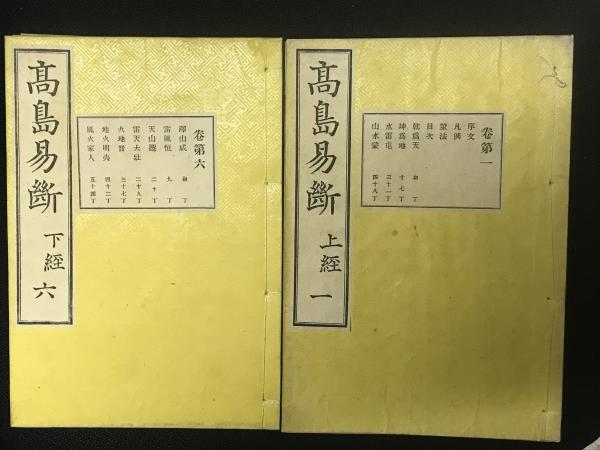 高島易斷 上經 一
卷第一
序文
凡例
筮法
目次
乾爲天 初丁
坤爲地 十七丁
水雷屯 三十一丁
山水蒙 四十八丁
高島易斷 下經 六
卷第六
澤山咸 初丁
雷風恒 九丁
天山遯 二十丁
雷天大壯 二十九丁
火地晉 三十七丁
地火明夷 四十二丁
風火家人 五十四丁